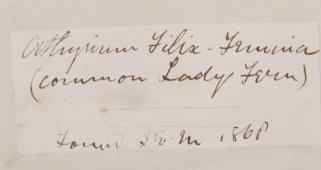 Athyrium Filix-Femina
(common Lady Fern)
1868